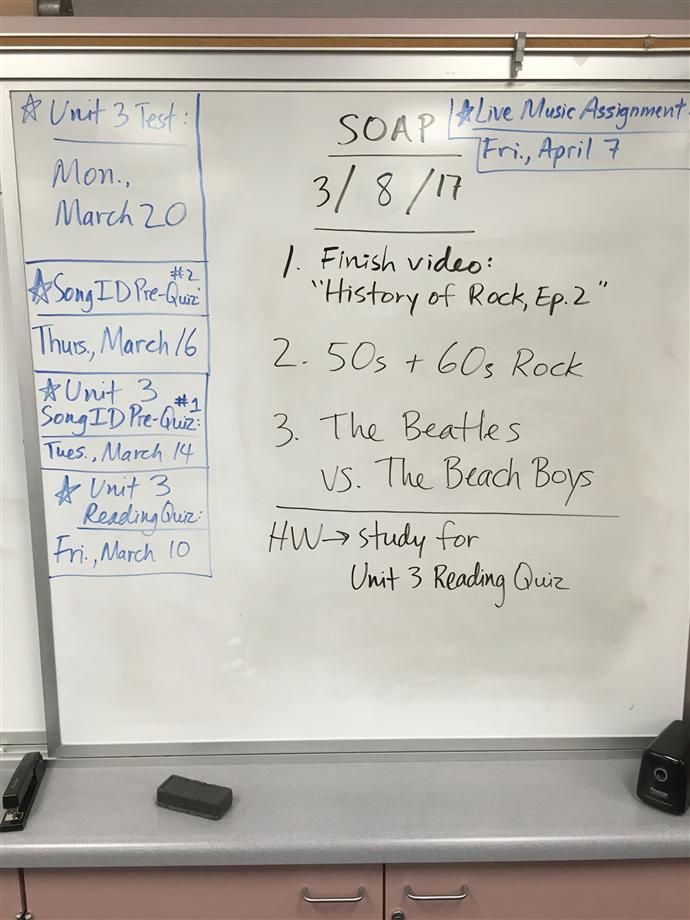 ☆ Unit 3 Test:
Mon.,
March 20
☆ Song ID Pre-Quiz #2:
Thurs., March 16
☆ Unit 3
Song ID Pre-Quiz #1:
Tues., March 14
☆ Unit 3
Reading Quiz:
Fri., March 10
SOAP
3/8/17
1. Finish video:
"History of Rock, Ep. 2"
2. 50s + 60s Rock
3. The Beatles
vs. The Beach Boys
HW → study for
Unit 3 Reading Quiz
☆ Live Music Assignment:
Fri., April 7